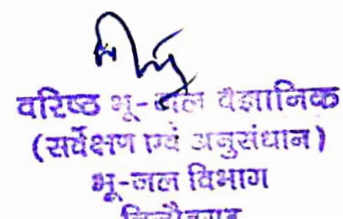 वरिष्ठ भू-जल वैज्ञानिक
(सर्वेक्षण एवं अनुसंधान)
भू-जल विभाग